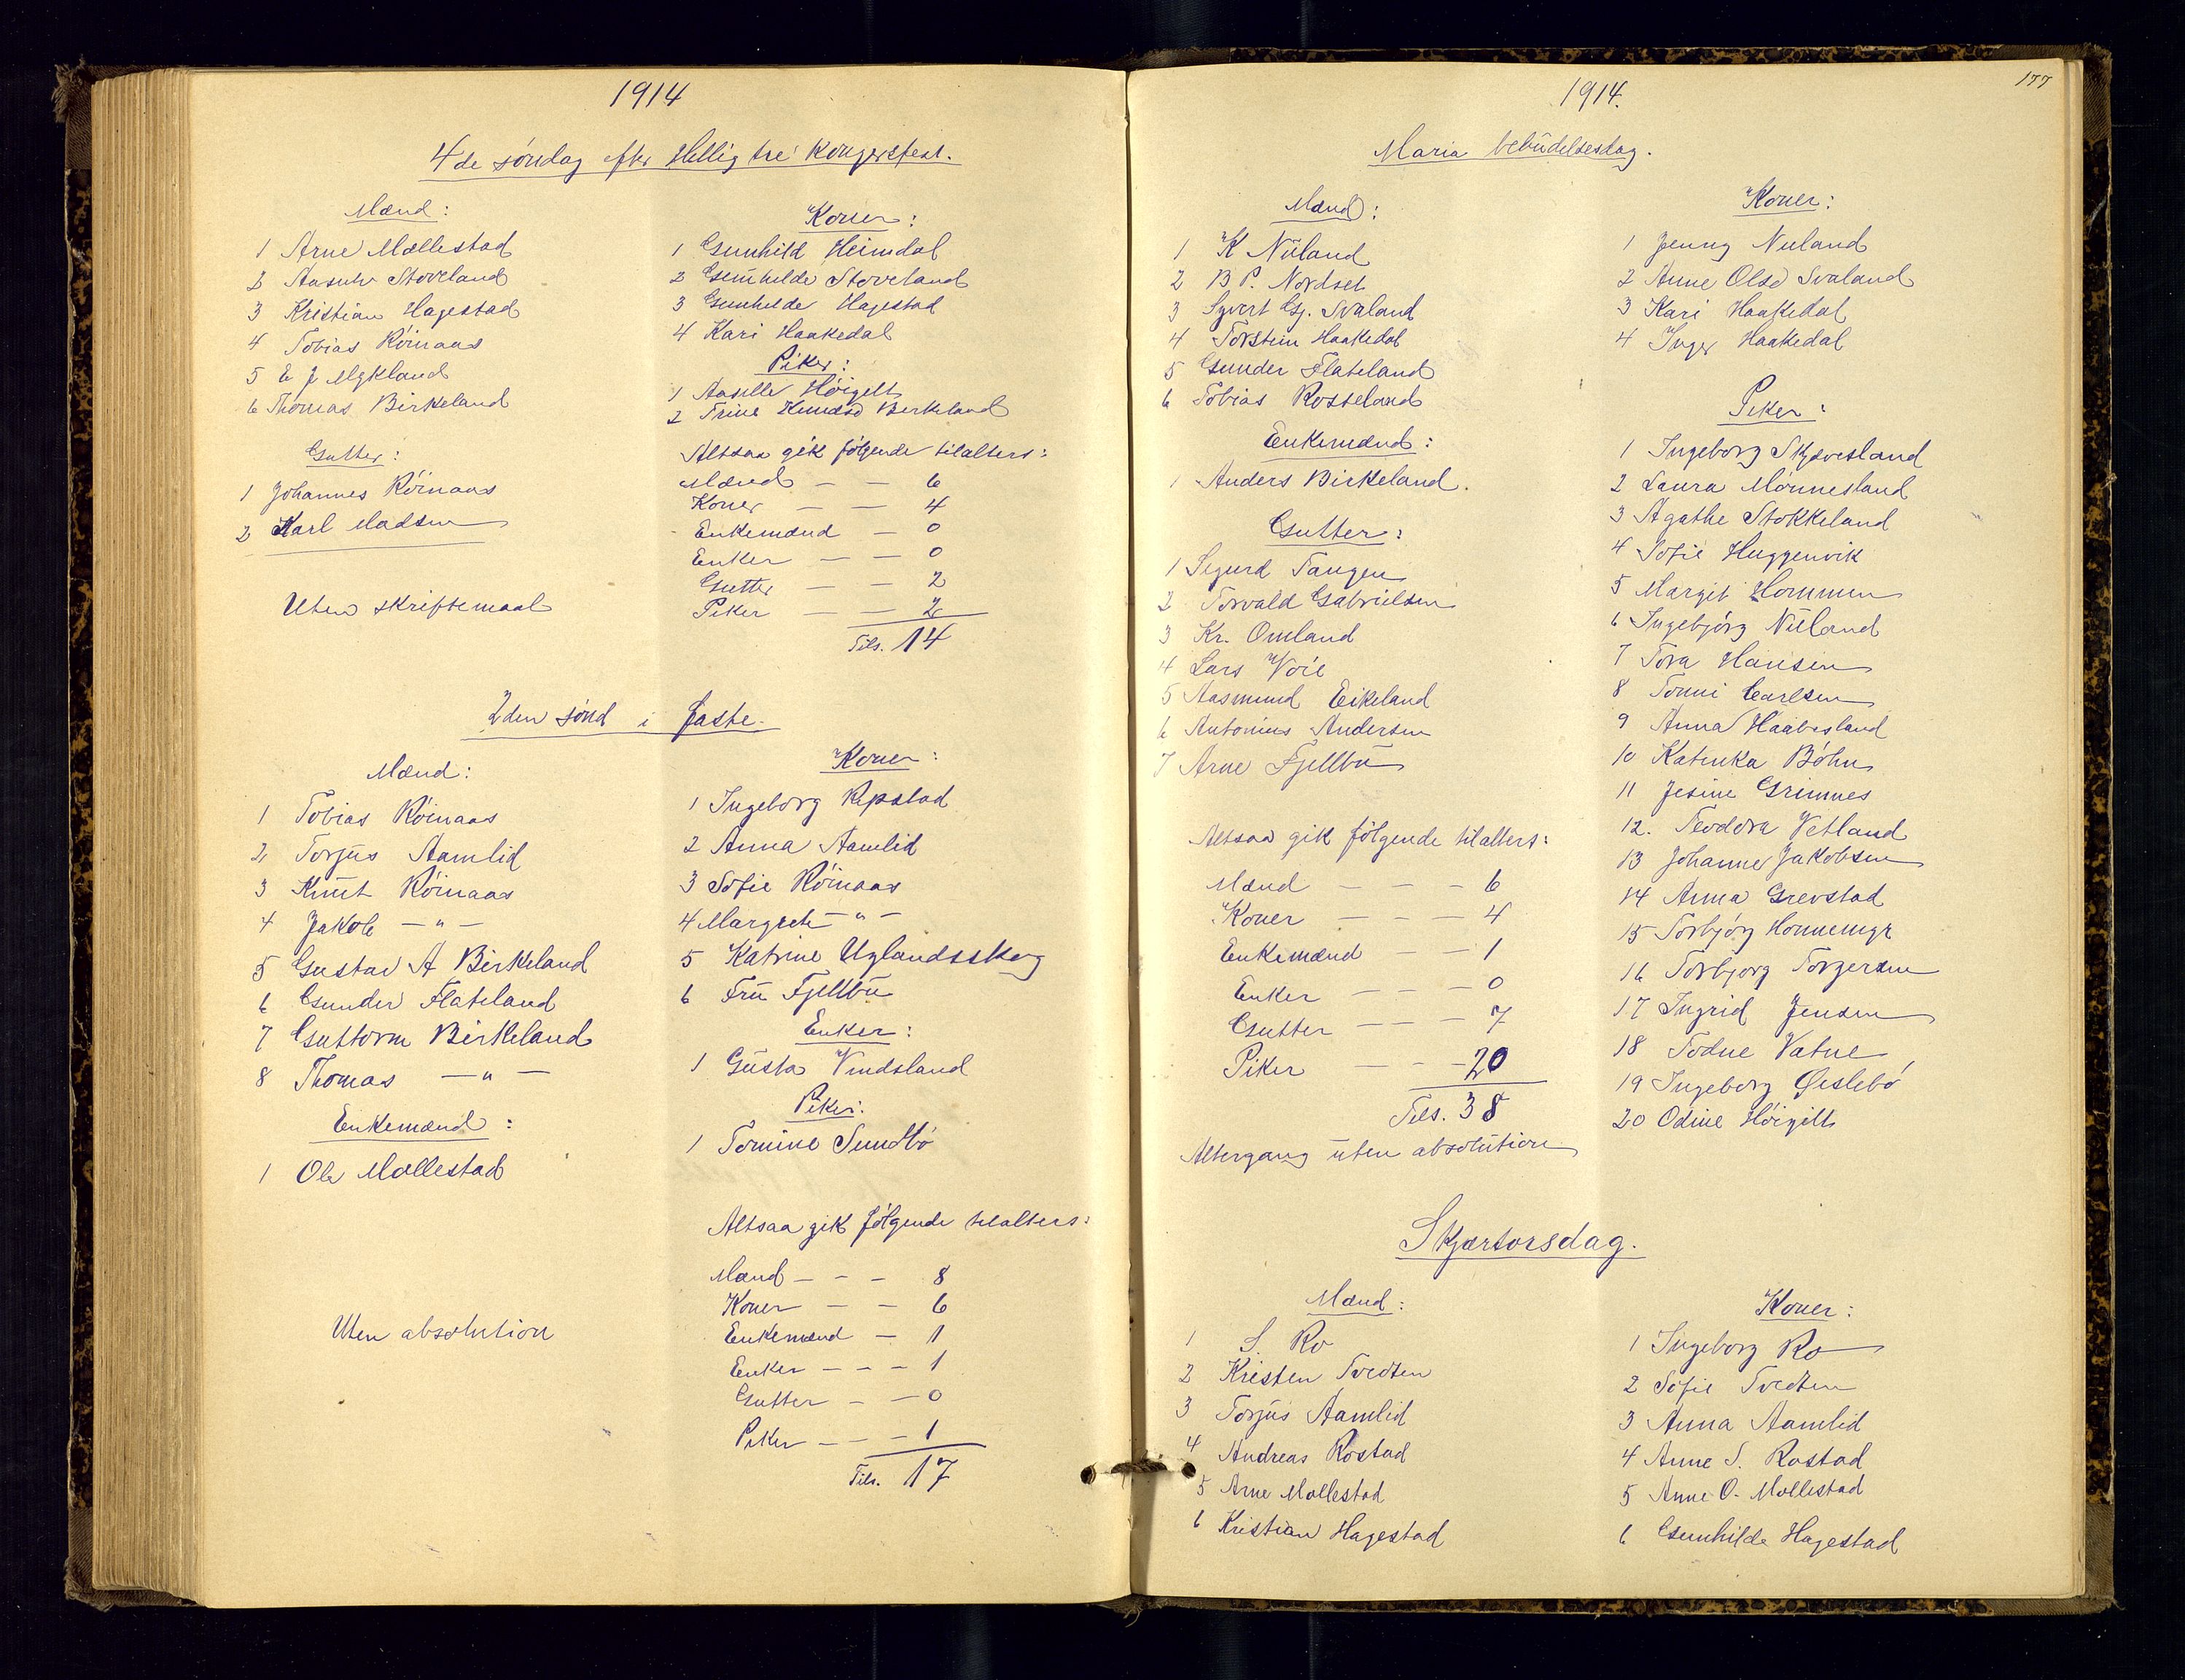 1914
4de söndag efter Hellig tre Kongersfest.
Mænd:
1 Arne Mollestad
2 Aasulv Stoveland
3 Kristian Hagestad
4 Tobias Röinaas
5 E J Mykland
6 Thomas Birkeland
Gutter:
1 Johannes Röinaas
2 Karl Madsen
Uten skriftemaal
Koner:
1 Gunhild Heimdal
2 Gunhilde Stoveland
3 Gunhilde Hagestad
4 Kari Haakedal
Piker:
1 Aasille Höigilt
2 Trine Knudsd Birkeland
Altsaa gik følgende tilalters:
Mænd — — 6
Koner — — 4
Enkemænd — 0
Enker — — 0
Gutter — — 2
Piker — — 2
Tils. 14
2den sönd i faste.
Mænd:
1 Tobias Röinaas
2 Torjus Aamlid
3 Knut Röinaas
4 Jakob — " —
5 Gustav A Birkeland
6 Gunder Flateland
7 Guttorm Birkeland
8 Thomas — " —
Enkemænd:
1 Ole Mollestad
Uten absolution
Koner:
1 Ingeborg Repstad
2 Anna Aamlid
3 Sofie Röinaas
4 Margrete — " —
5 Katrine Uglandsskog
6 Fru Fjellbu
Enker:
1 Gusta Vindsland
Piker:
1 Tomine Sundbö
Altsaa gik følgende tilalters:
Mænd — — — 8
Koner — — 6
Enkemænd — 1
Enker — — — 1
Gutter — — 0
Piker — — — 1
Tils. 17
177
1914.
Maria bebudelsesdag.
Mænd:
1 K Nuland
2 B P. Nordset
3 Syvert Gj. Svaland
4 Torstein Haakedal
5 Gunder Flateland
6 Tobias Rosseland
Enkemænd:
1 Anders Birkeland.
Gutter:
1 Sigurd Tangen
2 Torvald Gabrielsen
3 Kr. Omland
4 Lars Voie
5 Aasmund Eikeland
6 Antonius Andersen
7 Arne Fjellbu
Altsaa gik følgende tilalters:
Mænd — — — 6
Koner — — — 4
Enkemænd — — 1
Enker — — — 0
Gutter — — — 7
Piker — — — 20
Tils. 38
Altergang uten absolution
Koner:
1 Jenny Nuland
2 Anne Olsd Svaland
3 Kari Haakedal
4 Inger Haakedal
Piker:
1 Ingeborg Skjævesland
2 Laura Mönnesland
3 Agathe Stokkeland
4 Sofie Huggenvik
5 Margit Hommen
6 Ingebjörg Nuland
7 Tora Hansen
8 Tonni Carlsen
9 Anna Haabesland
10 Katinka Böhn
11 Jesine Grimnes
12. Teodora Vetland
13 Johanne Jakobsen
14 Anna Grevstad
15 Torbjörg Honnemyr
16 Torbjorg Torgersen
17 Ingrid Jensen
18 Todne Vatne
19 Ingeborg Øislebö
20 Odine Höigilt
Skjærtorsdag.
Mænd:
1 S. Ro
2 Kristen Tvedten
3 Torjus Aamlid
4 Andreas Rostad
5 Arne Mollestad
6 Kristian Hagestad
Koner:
1 Ingeborg Ro
2 Sofie Tvedten
3 Anna Aamlid
4 Anne S. Rostad
5 Anne O. Mollestad
6 Gunhilde Hagestad